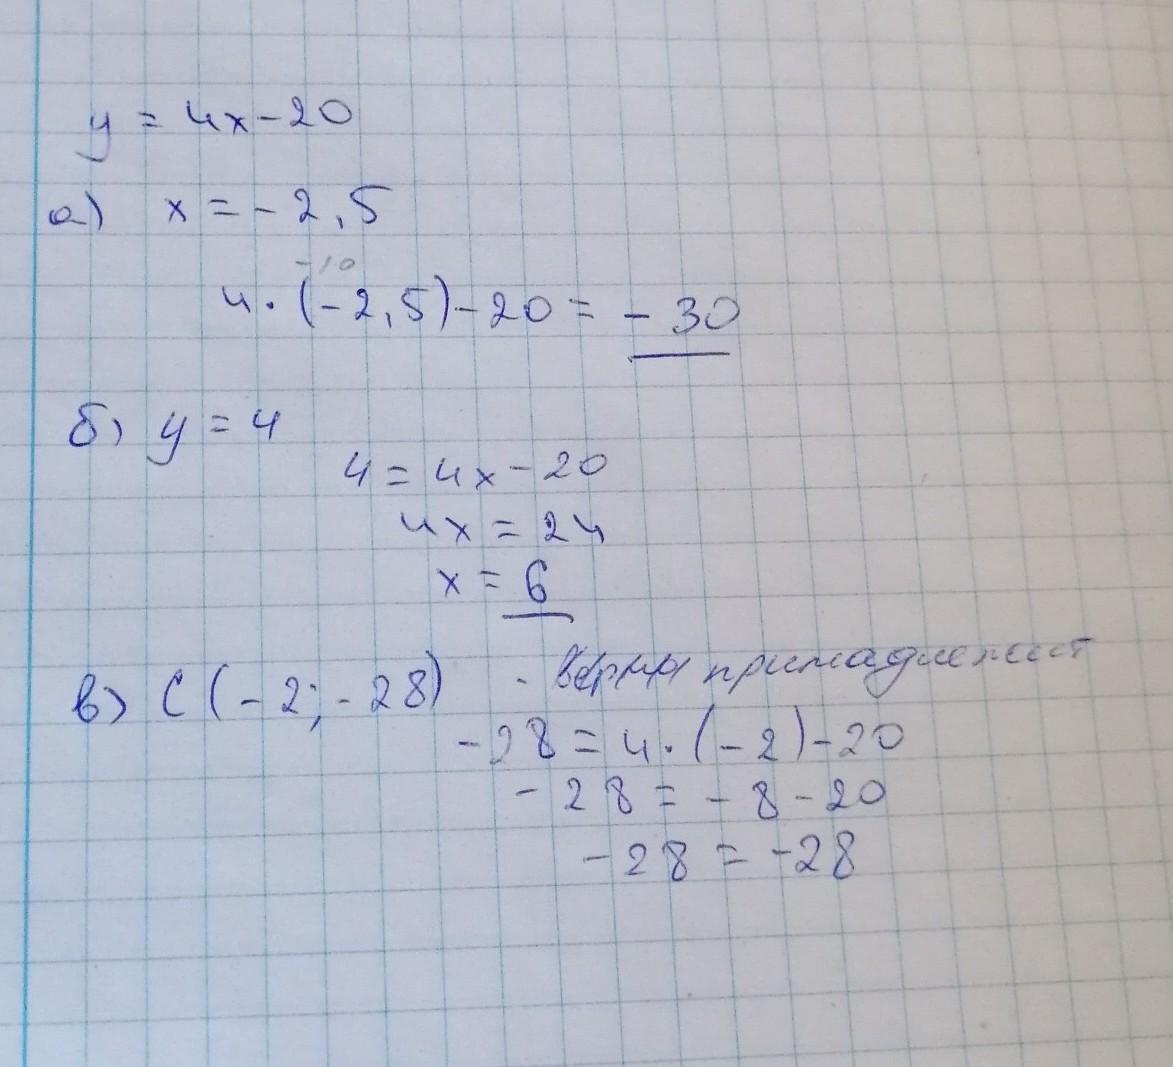 y = 4x - 20
а) x = - 2,5
-10
4 · (-2,5) - 20 = - 30
б) y = 4
4 = 4x - 20
4x = 24
x = 6
в) C (- 2; - 28) - принадлежит
-28 = 4 · (-2) - 20
- 28 = - 8 - 20
-28 = -28